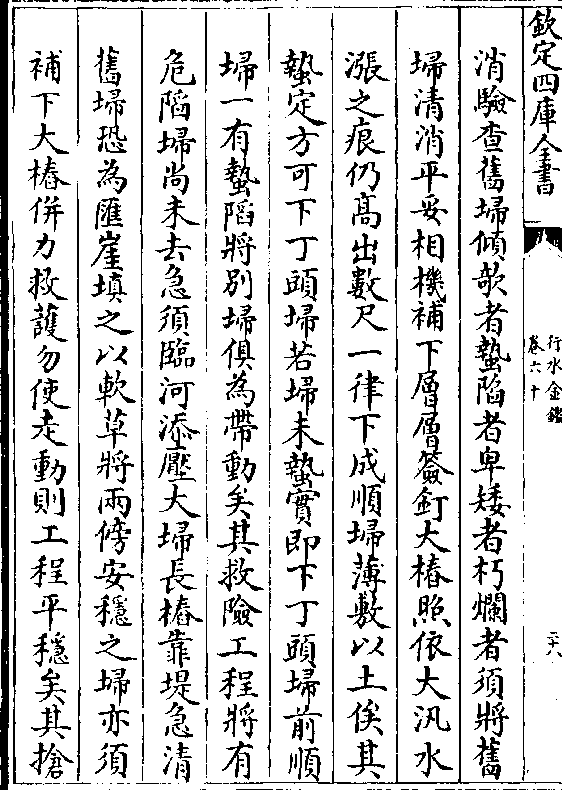 欽定四庫全書
行水金鑑
卷六十
二十八
消驗查舊埽傾欹者蟄陷者卑矮者朽爛者須將舊
埽清消平妥相機補下層層簽釘大椿照依大汛水
漲之痕仍髙出數尺一律下成順埽薄敷以土俟其
蟄定方可下丁頭埽若埽未蟄實即下丁頭埽前順
埽一有蟄陷將別埽俱為帶動矣其救險工程將有
危陷埽尚未去急須臨河添壓大埽長樁靠堤急清
舊埽恐為匯崖填之以軟草將兩傍安穩之埽亦須
補下大樁併力救護勿使走動則工程平穩矣其搶